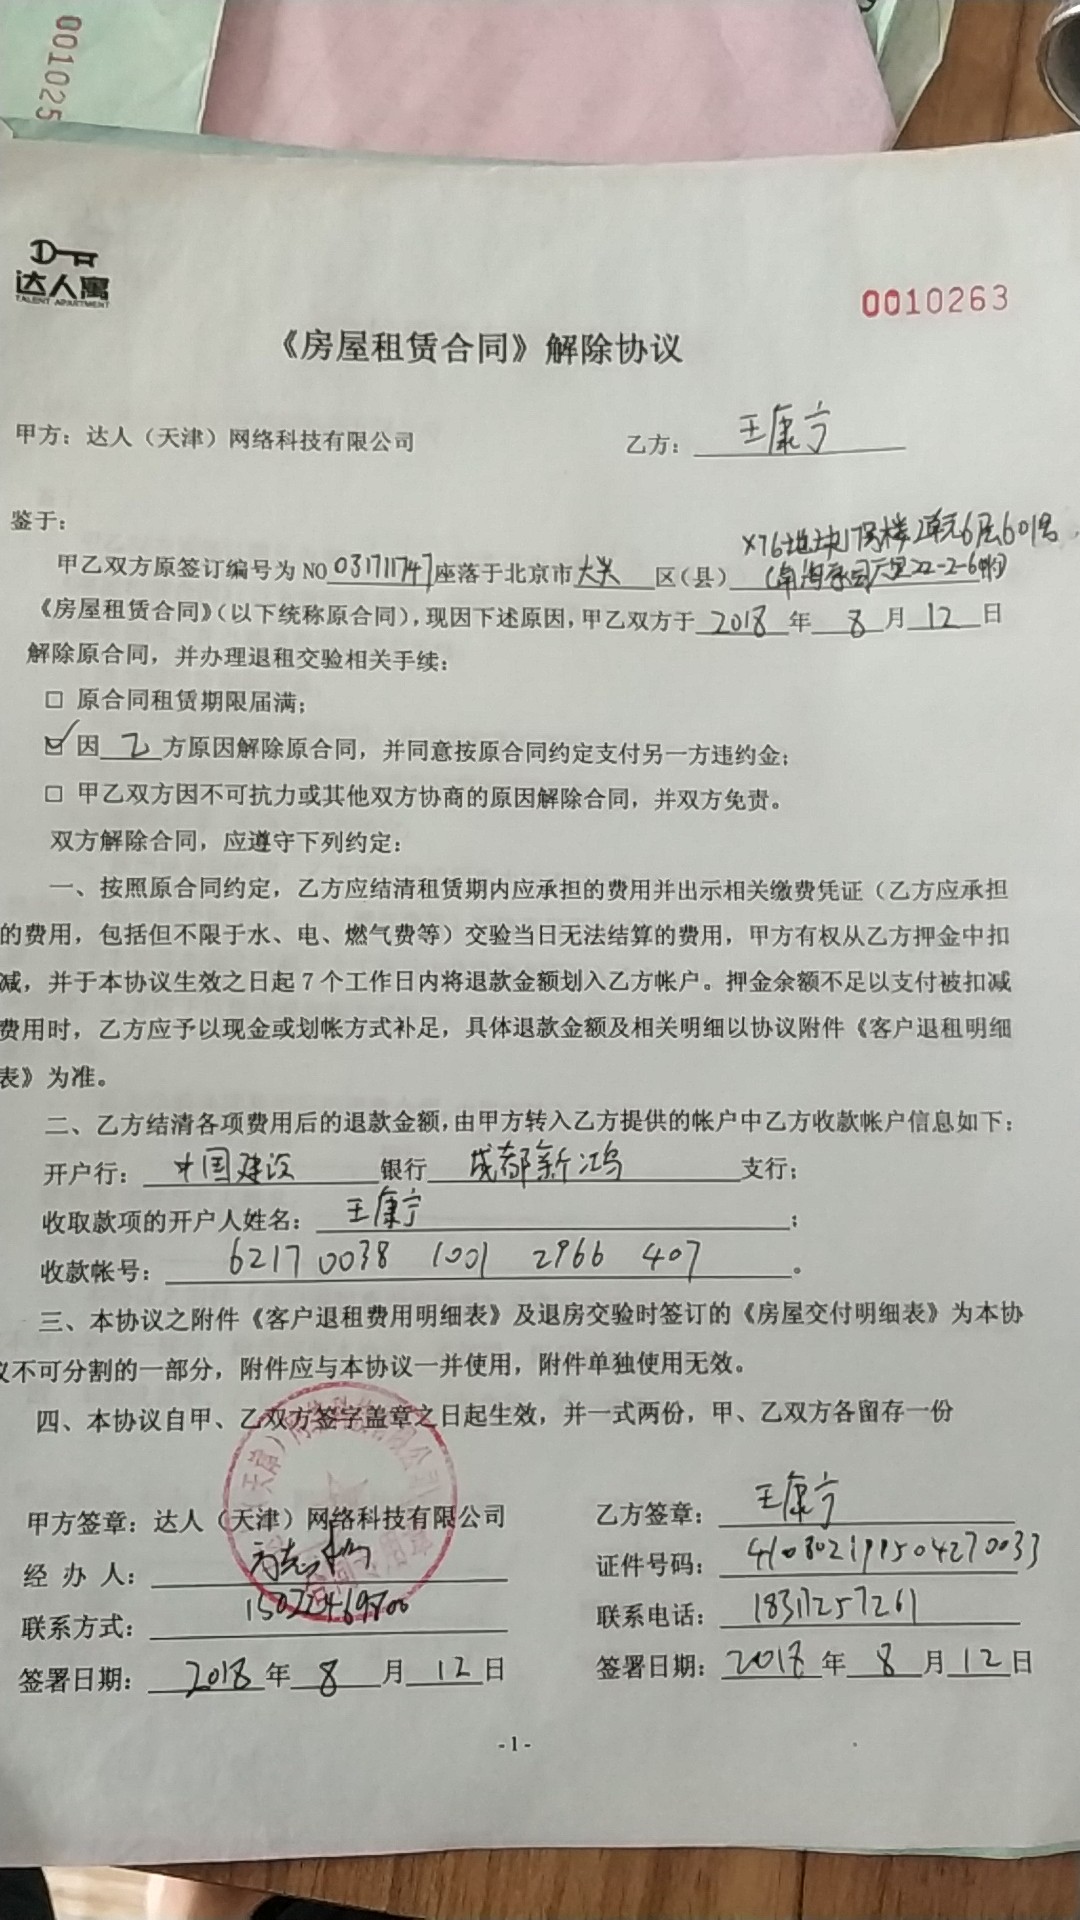 001025
达人寓
TALENT APARTMENT
0010263
《房屋租赁合同》解除协议
甲方：达人（天津）网络科技有限公司 乙方：王康宁
鉴于：
X76地块17号楼2单元6层601号
甲乙双方原签订编号为 NO 031711747 座落于北京市 大兴 区(县) 22-2-6
《房屋租赁合同》(以下统称原合同)，现因下述原因，甲乙双方于 2018 年 8 月 12 日
解除原合同，并办理退租交验相关手续：
□ 原合同租赁期限届满；
☑ 因 乙 方原因解除原合同，并同意按原合同约定支付另一方违约金；
□ 甲乙双方因不可抗力或其他双方协商的原因解除合同，并双方免责。
双方解除合同，应遵守下列约定：
一、按照原合同约定，乙方应结清租赁期内应承担的费用并出示相关缴费凭证（乙方应承担
的费用，包括但不限于水、电、燃气费等）交验当日无法结算的费用，甲方有权从乙方押金中扣
减，并于本协议生效之日起 7 个工作日内将退款金额划入乙方帐户。押金余额不足以支付被扣减
费用时，乙方应予以现金或划帐方式补足，具体退款金额及相关明细以协议附件《客户退租明细
表》为准。
二、乙方结清各项费用后的退款金额，由甲方转入乙方提供的帐户中乙方收款帐户信息如下：
开户行：中国建设 银行 成都新鸿 支行；
收取款项的开户人姓名：王康宁；
收款帐号：6217 0038 1001 2966 407。
三、本协议之附件《客户退租费用明细表》及退房交验时签订的《房屋交付明细表》为本协
议不可分割的一部分，附件应与本协议一并使用，附件单独使用无效。
四、本协议自甲、乙双方签字盖章之日起生效，并一式两份，甲、乙双方各留存一份
甲方签章：达人（天津）网络科技有限公司 乙方签章：王康宁
经 办 人： 证件号码：410802199504270033
联系方式：15022469800 联系电话：18317257261
签署日期：2018 年 8 月 12 日 签署日期：2018 年 8 月 12 日
- 1 -